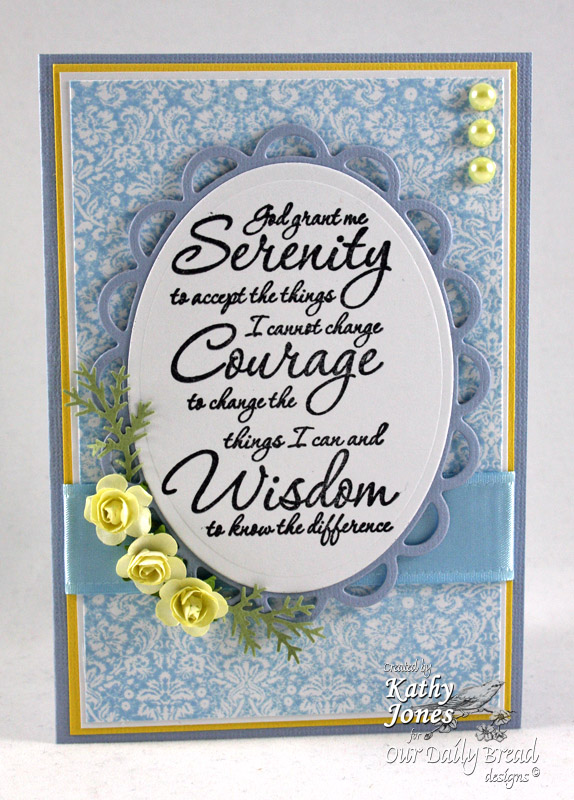 God grant me
Serenity
to accept the things
I cannot change
Courage
to change the
things I can and
Wisdom
to know the difference
Created by
Kathy
Jones
for
Our Daily Bread
designs ©